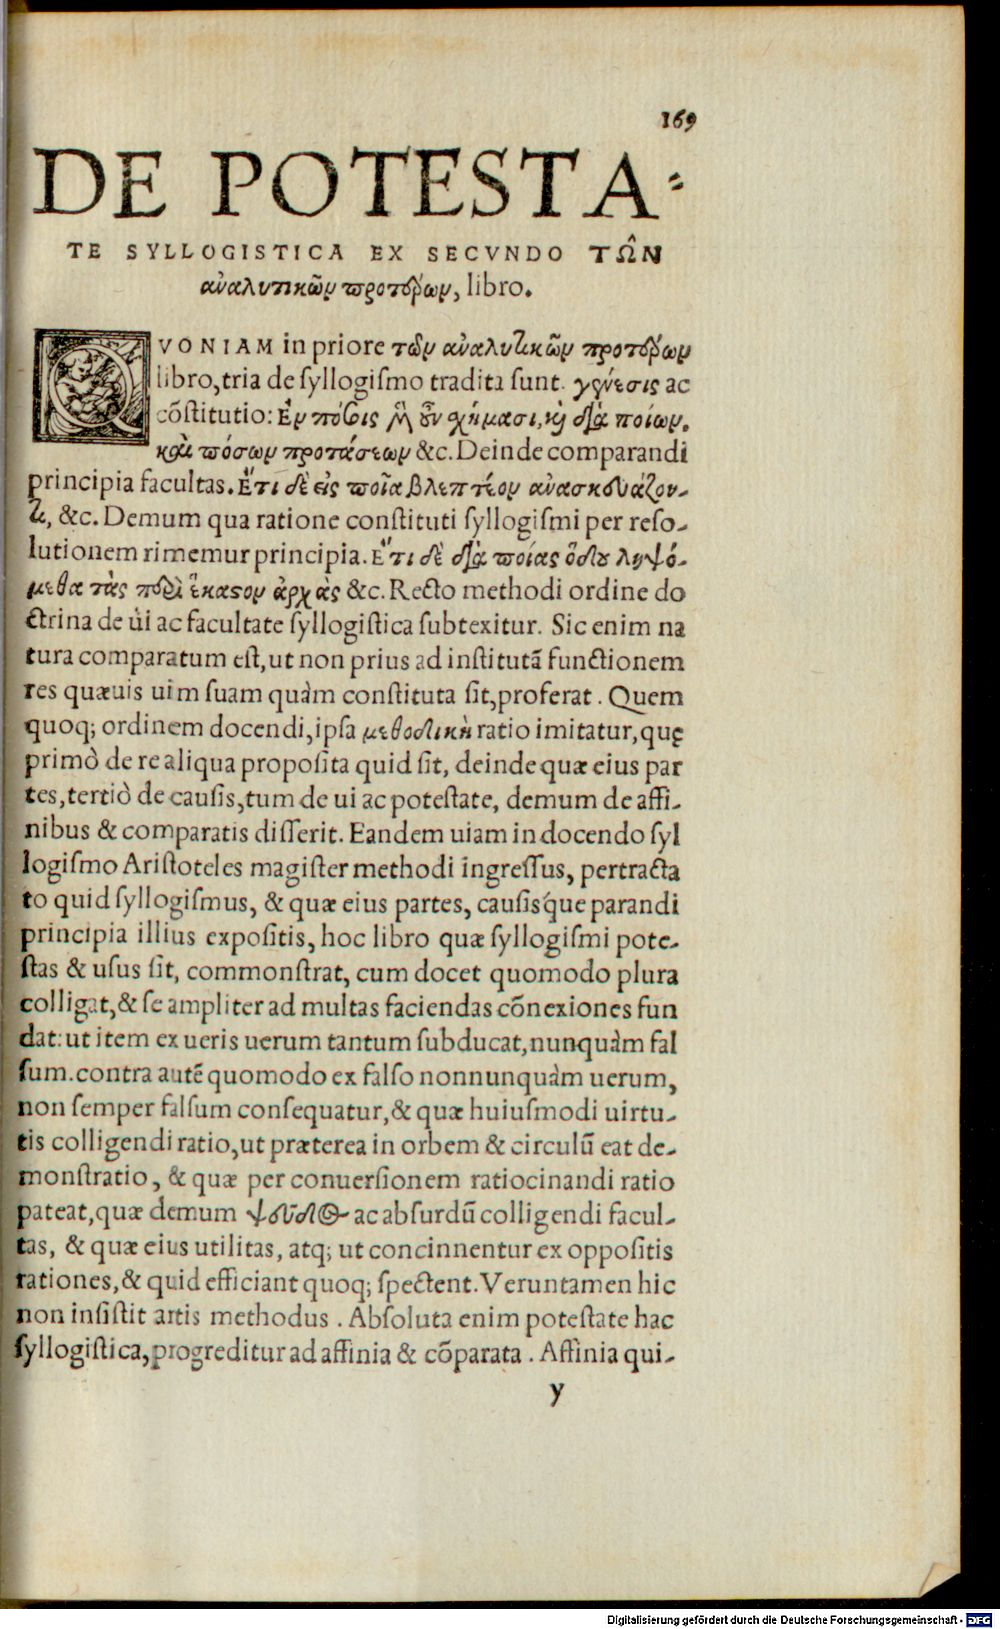 169
DE POTESTA-
TE SYLLOGISTICA EX SECVNDO ΤΩ͂Ν
ἀναλυτικῶν προτέρων, libro.
QVONIAM in priore τῶν ἀναλυτικῶν προτέρων
libro, tria de ſyllogiſmo tradita ſunt. γένεσις ac
cõſtitutio: Ἐν πόσοις χήμασι, καὶ διὰ ποίων.
καὶ πόσων προτάσεων &c. Deinde comparandi
principia facultas. Ἔτι δὲ εἰς ποῖα βλεπτέον ἀνασκευάζον-
τι, &c. Demum qua ratione conſtituti ſyllogiſmi per reſo-
lutionem rimemur principia. Ἔτι δὲ διὰ ποίας ὁδοῦ ληψό-
μεθα τὰς περὶ ἕκαστον ἀρχὰς &c. Recto methodi ordine do
ctrina de ui ac facultate ſyllogiſtica ſubtexitur. Sic enim na
tura comparatum eſt, ut non prius ad inſtitutã functionem
res quæuis uim ſuam quàm conſtituta ſit, proferat. Quem
quoq; ordinem docendi, ipſa μεθοδικὴ ratio imitatur, quę
primò de re aliqua propoſita quid ſit, deinde quæ eius par
tes, tertiò de cauſis, tum de ui ac poteſtate, demum de affi-
nibus & comparatis diſſerit. Eandem uiam in docendo ſyl
logiſmo Ariſtoteles magiſter methodi ingreſſus, pertracta
to quid ſyllogiſmus, & quæ eius partes, cauſisq́ue parandi
principia illius expoſitis, hoc libro quæ ſyllogiſmi pote-
ſtas & uſus ſit, commonſtrat, cum docet quomodo plura
colligat, & ſe ampliter ad multas faciendas cõnexiones fun
dat: ut item ex ueris uerum tantum ſubducat, nunquàm fal
ſum. contra autẽ quomodo ex falſo nonnunquàm uerum,
non ſemper falſum conſequatur, & quæ huiuſmodi uirtu-
tis colligendi ratio, ut præterea in orbem & circulũ eat de-
monſtratio, & quæ per conuerſionem ratiocinandi ratio
pateat, quæ demum ψεῦδος ac abſurdũ colligendi facul-
tas, & quæ eius utilitas, atq; ut concinnentur ex oppoſitis
rationes, & quid efficiant quoq; ſpectent. Veruntamen hic
non inſiſtit artis methodus. Abſoluta enim poteſtate hac
ſyllogiſtica, progreditur ad affinia & cõparata. Affinia qui-
y
Digitalisierung gefördert durch die Deutsche Forschungsgemeinschaft - DFG